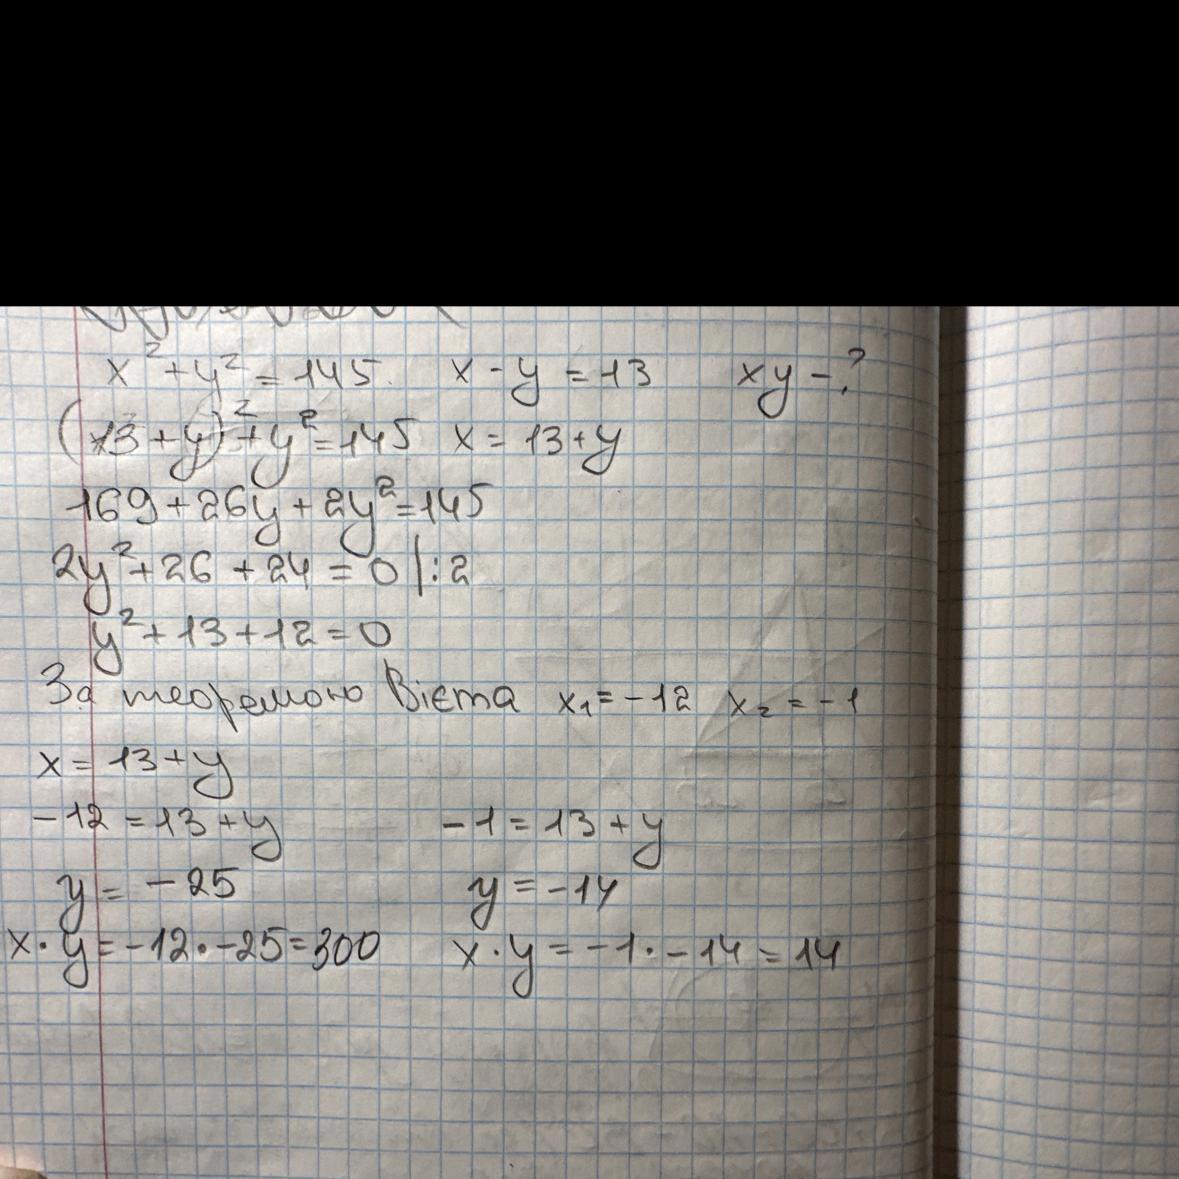 x² + y² = 145. x - y = 13 xy - ?
(13 + y)² + y² = 145 x = 13 + y
169 + 26y + 2y² = 145
2y² + 26 + 24 = 0 | : 2
y² + 13 + 12 = 0
За теоремою Вієта x₁ = -12 x₂ = -1
x = 13 + y
-12 = 13 + y -1 = 13 + y
y = -25 y = -14
x · y = -12 · -25 = 300 x · y = -1 · -14 = 14